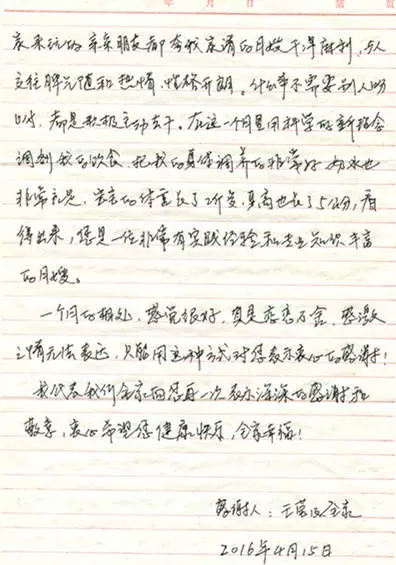 年 月 日 第 页
家来玩的亲亲朋友都夸我家请的月嫂干净麻利，与人
交往脾气随和热情，性格开朗。什么事不需要别人吩
咐，都是积极主动去干。在这一个月里用科学的新理念
调剂我的饮食，把我的身体调养的非常好，奶水也
非常充足，宝宝的体重长了2斤多，身高也长了5公分，看
得出来，您是一位非常有实践经验和专业知识丰富
的月嫂。
一个月的相处，感觉很好，真是恋恋不舍，感激
之情无法表达，只能用这种方式对您表示衷心的感谢！
我代表我们全家向您再一次表示深深的感谢和
敬意，衷心希望您健康快乐，全家幸福！
感谢人：王 全家
2016年4月15日